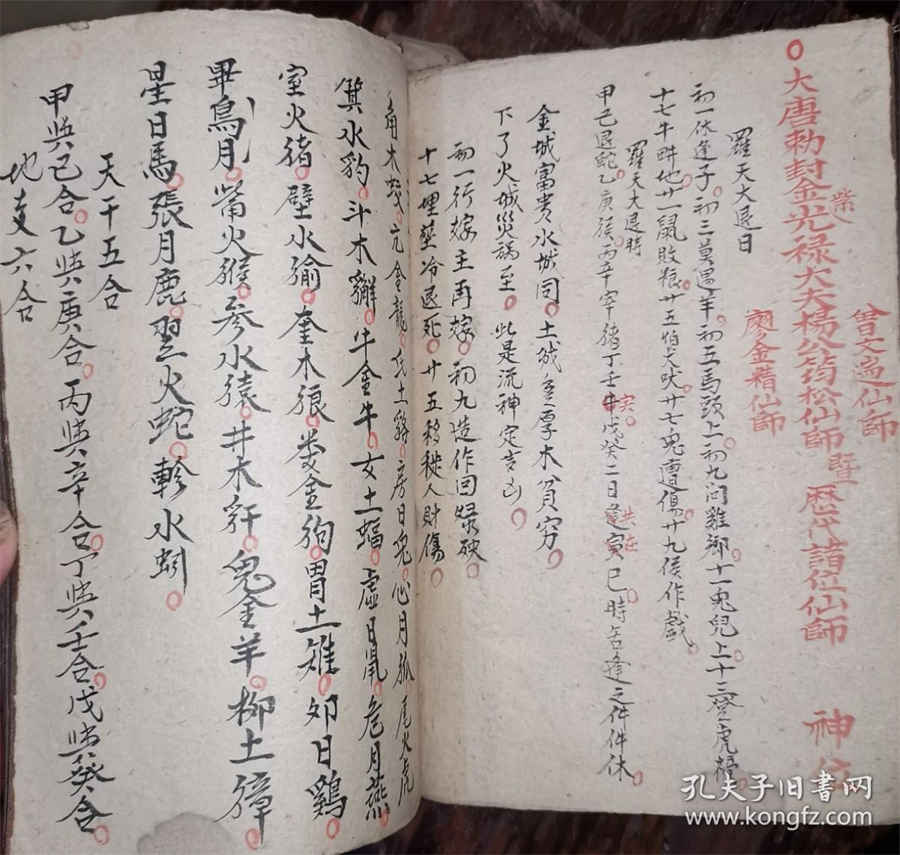 大唐勅封金紫光禄大夫楊公筠松仙師 曾文遄仙師 廖金精仙師 暨 歷代諸位仙師 神位
羅天大退日
初一休逢子。初三莫遇羊。初五馬頭上。初九问雞鄉。十一兔兒上十三登虎榜。
十七牛畊地。廿一鼠敗粮。廿五怕犬吠。廿七兔遭傷。廿九猴作戲
羅天大退時
甲己退蛇乙庚猴。丙辛宰猪丁壬牛。戊癸二日寅巳時若逢之件件休。
金城富贵水城同。土城至厚木貧穷。
下了火城災祸至。此是流神定吉凶。
初一行嫁主再嫁。初九造作回祿殃
十七埋塟冷退死。廿五移徙人財傷。
角木蛟。亢金龍。氐土貉。房日兔。心月狐。尾火虎
箕水豹。斗木獬。牛金牛。女土蝠。虛日鼠。危月燕。
室火猪。壁水㺄。奎木狼。娄金狗。胃土雉。昴日鷄
畢烏月。觜火猴。参水猿。井木犴。鬼金羊。柳土獐
星日馬。張月鹿。翌火蛇。軫水蚓
天干五合
甲與己合。乙與庚合。丙與辛合。丁與壬合。戊與癸合
地支六合
孔夫子旧書网
www.kongfz.com